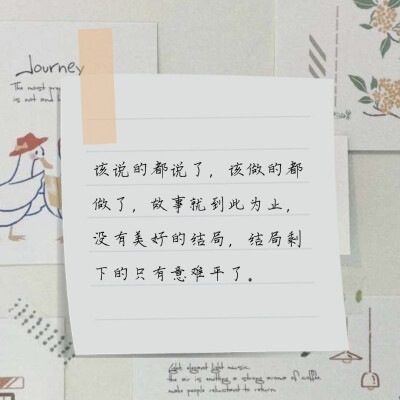 Journey
is not and
该说的都说了，该做的都
做了，故事就到此为止，
没有美好的结局，结局剩
下的只有意难平了。
light elegant light music
the air is emitting a strong aroma of coffee
make people reluctant to return